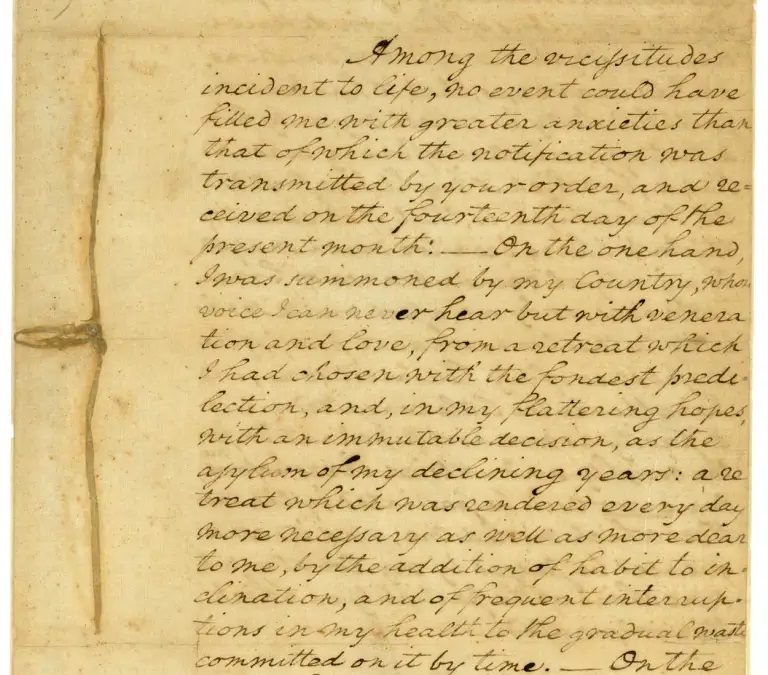 Among the vicissitudes
incident to life, no event could have
filled me with greater anxieties than
that of which the notification was
transmitted by your order, and re=
ceived on the fourteenth day of the
present month: — On the one hand,
I was summoned by my Country, whose
voice I can never hear but with venera
tion and love, from a retreat which
I had chosen with the fondest predi-
lection, and, in my flattering hopes,
with an immutable decision, as the
asylum of my declining years: a re
treat which was rendered every day
more necessary as well as more dear
to me, by the addition of habit to in-
clination, and of frequent interrup-
tions in my health to the gradual waste
committed on it by time. — On the